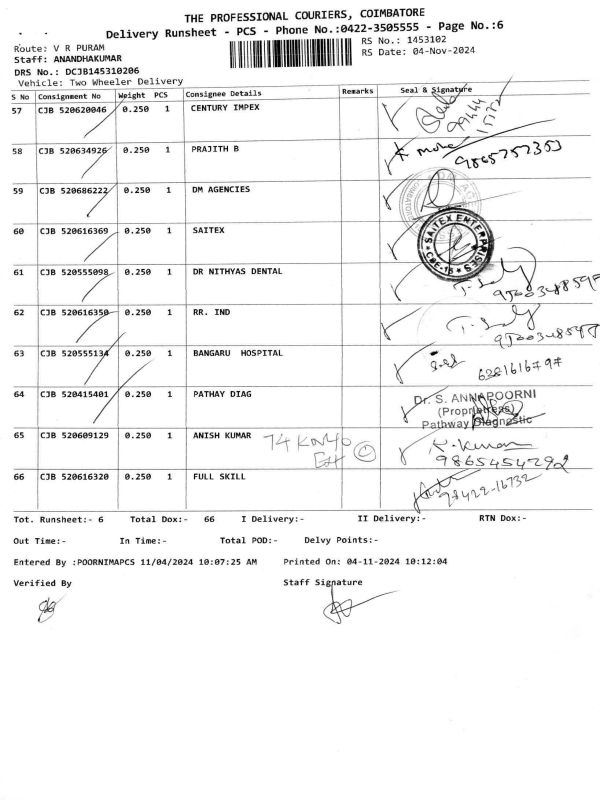 THE PROFESSIONAL COURIERS, COIMBATORE
Delivery Runsheet - PCS - Phone No.:0422-3505555 - Page No.:6
Route: V R PURAM
RS No.: 1453102
Staff: ANANDHAKUMAR
RS Date: 04-Nov-2024
DRS No.: DCJB145310206
Vehicle: Two Wheeler Delivery
S No Consignment No Weight PCS Consignee Details Remarks Seal & Signature
57 CJB 520620046 0.250 1 CENTURY IMPEX
58 CJB 520634926 0.250 1 PRAJITH B
59 CJB 520686222 0.250 1 DM AGENCIES
60 CJB 520616369 0.250 1 SAITEX
SAITEX ENTERPRISES
CBE-15
61 CJB 520555098 0.250 1 DR NITHYAS DENTAL
62 CJB 520616350 0.250 1 RR. IND
63 CJB 520555134 0.250 1 BANGARU HOSPITAL
64 CJB 520415401 0.250 1 PATHAY DIAG
Dr. S. ANNAPOORNI
(Proprietress)
Pathway Diagnostic
65 CJB 520609129 0.250 1 ANISH KUMAR
K. Kumar
9865454292
66 CJB 520616320 0.250 1 FULL SKILL
98422-16732
Tot. Runsheet:- 6 Total Dox:- 66 I Delivery:- II Delivery:- RTN Dox:-
Out Time:- In Time:- Total POD:- Delvy Points:-
Entered By :POORNIMAPCS 11/04/2024 10:07:25 AM Printed On: 04-11-2024 10:12:04
Verified By Staff Signature